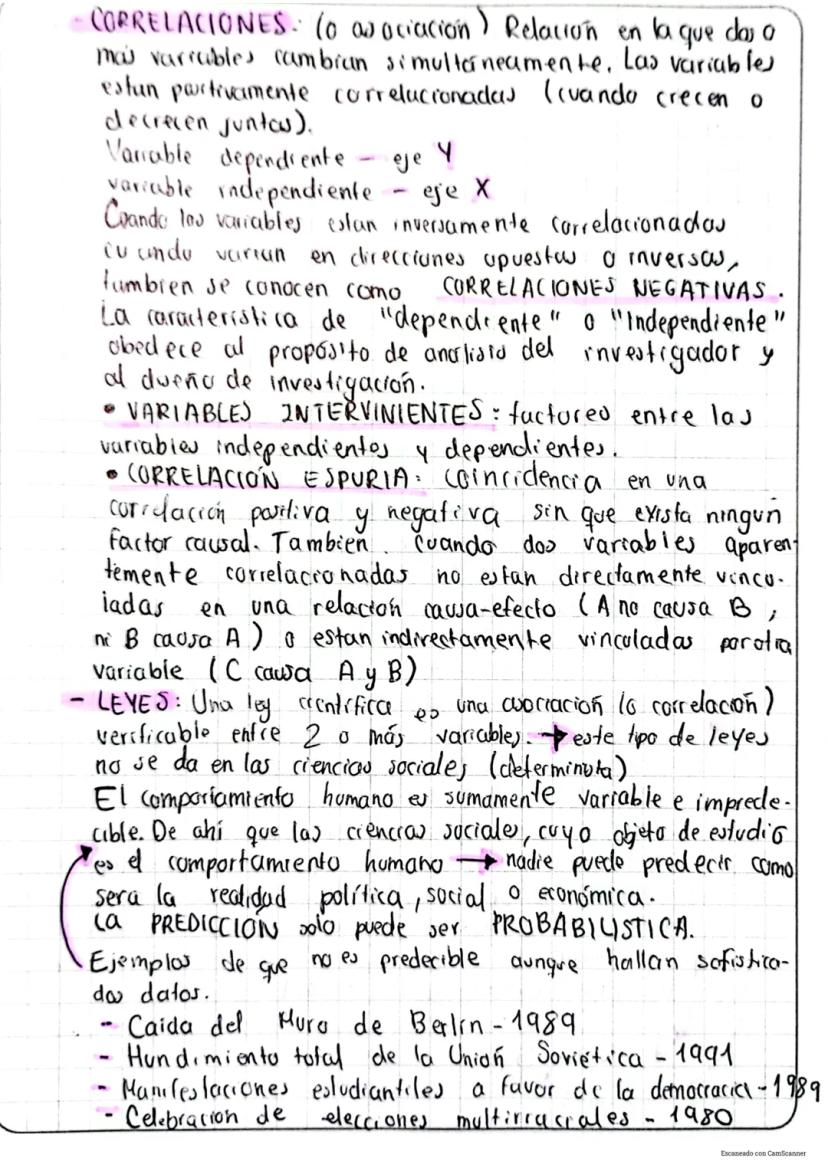 - CORRELACIONES: (o asociación) Relación en la que dos o
más variables cambian simultáneamente. Las variables
estan positivamente correlacionadas (cuando crecen o
decrecen juntas).
Variable dependiente - eje Y
variable independiente - eje X
Cuando las variables estan inversamente correlacionadas
cuando varian en direcciones opuestas o inversas,
tambien se conocen como CORRELACIONES NEGATIVAS.
La característica de "dependiente" o "Independiente"
obedece al propósito de analisis del investigador y
al dueño de investigación.
• VARIABLES INTERVINIENTES: factores entre las
variables independientes y dependientes.
• CORRELACIÓN ESPURIA: coincidencia en una
correlación positiva y negativa sin que exista ningún
factor causal. Tambien cuando dos variables aparen-
temente correlacionadas no estan directamente vincu-
ladas en una relación causa-efecto (A no causa B,
ni B causa A) o estan indirectamente vinculadas por otra
variable (C causa A y B)
- LEYES: Una ley científica es una asociación (o correlación)
verificable entre 2 o más variables. → este tipo de leyes
no se da en las ciencias sociales (determinista)
El comportamiento humano es sumamente variable e imprede-
cible. De ahí que las ciencias sociales, cuyo objeto de estudio
es el comportamiento humano → nadie puede predecir como
sera la realidad política, social o económica.
La PREDICCIÓN solo puede ser PROBABILISTICA.
Ejemplos de que no es predecible aunque hallan sofistica-
dos datos.
- Caida del Muro de Berlín - 1989
- Hundimiento total de la Unión Soviética - 1991
- Manifestaciones estudiantiles a favor de la democracia - 1989
- Celebración de elecciones multirraciales - 1980
Escaneado con CamScanner